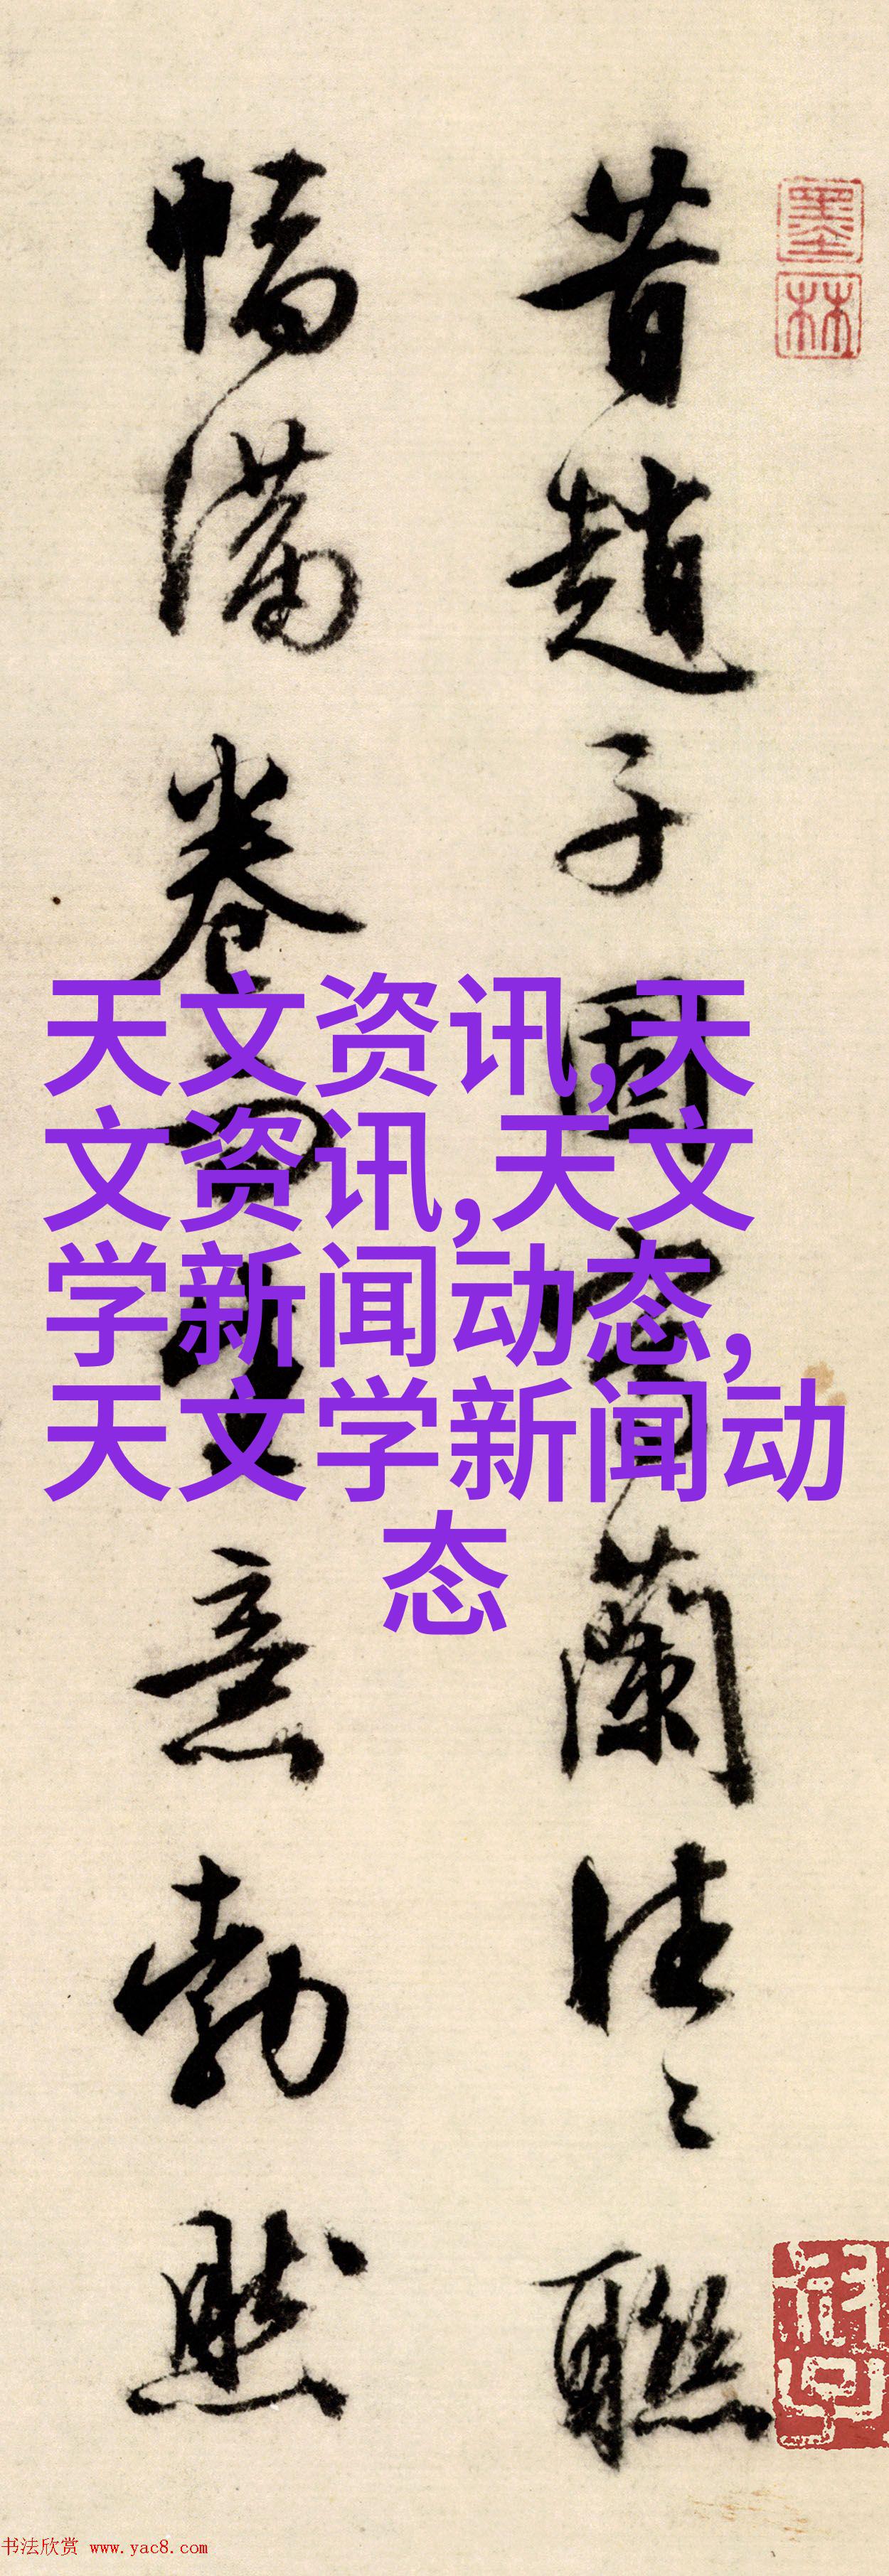 墨林
昔趙子固寫蘭往〻聯
幅滿卷而生意勃然
天文资讯,天
文资讯,天文
学新闻动态,
天文学新闻动
态
书法欣赏 www.yac8.com